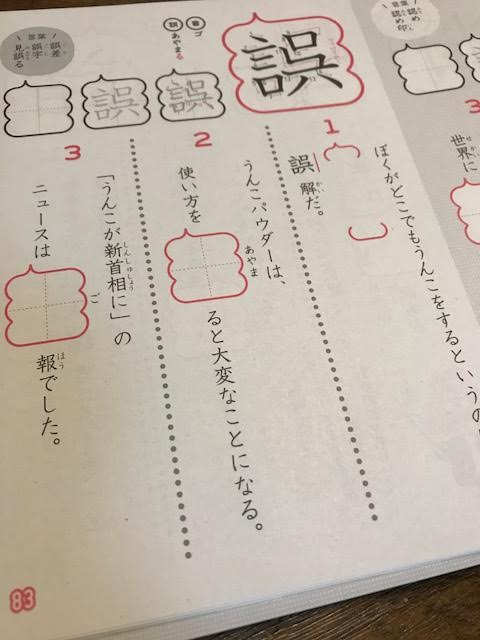 言葉
認め
認め印
3
世界に
誤
音 ゴ
訓 あやまる
誤
誤
言葉
誤差
誤字
見誤る
1
ぼくがどこでもうんこをするというの
誤解だ。
かい
2
うんこパウダーは、
使い方を
あやま
ると大変なことになる。
3
「うんこが新首相に」の
しんしゅしょう
ニュースは
ご
報でした。
ほう
83